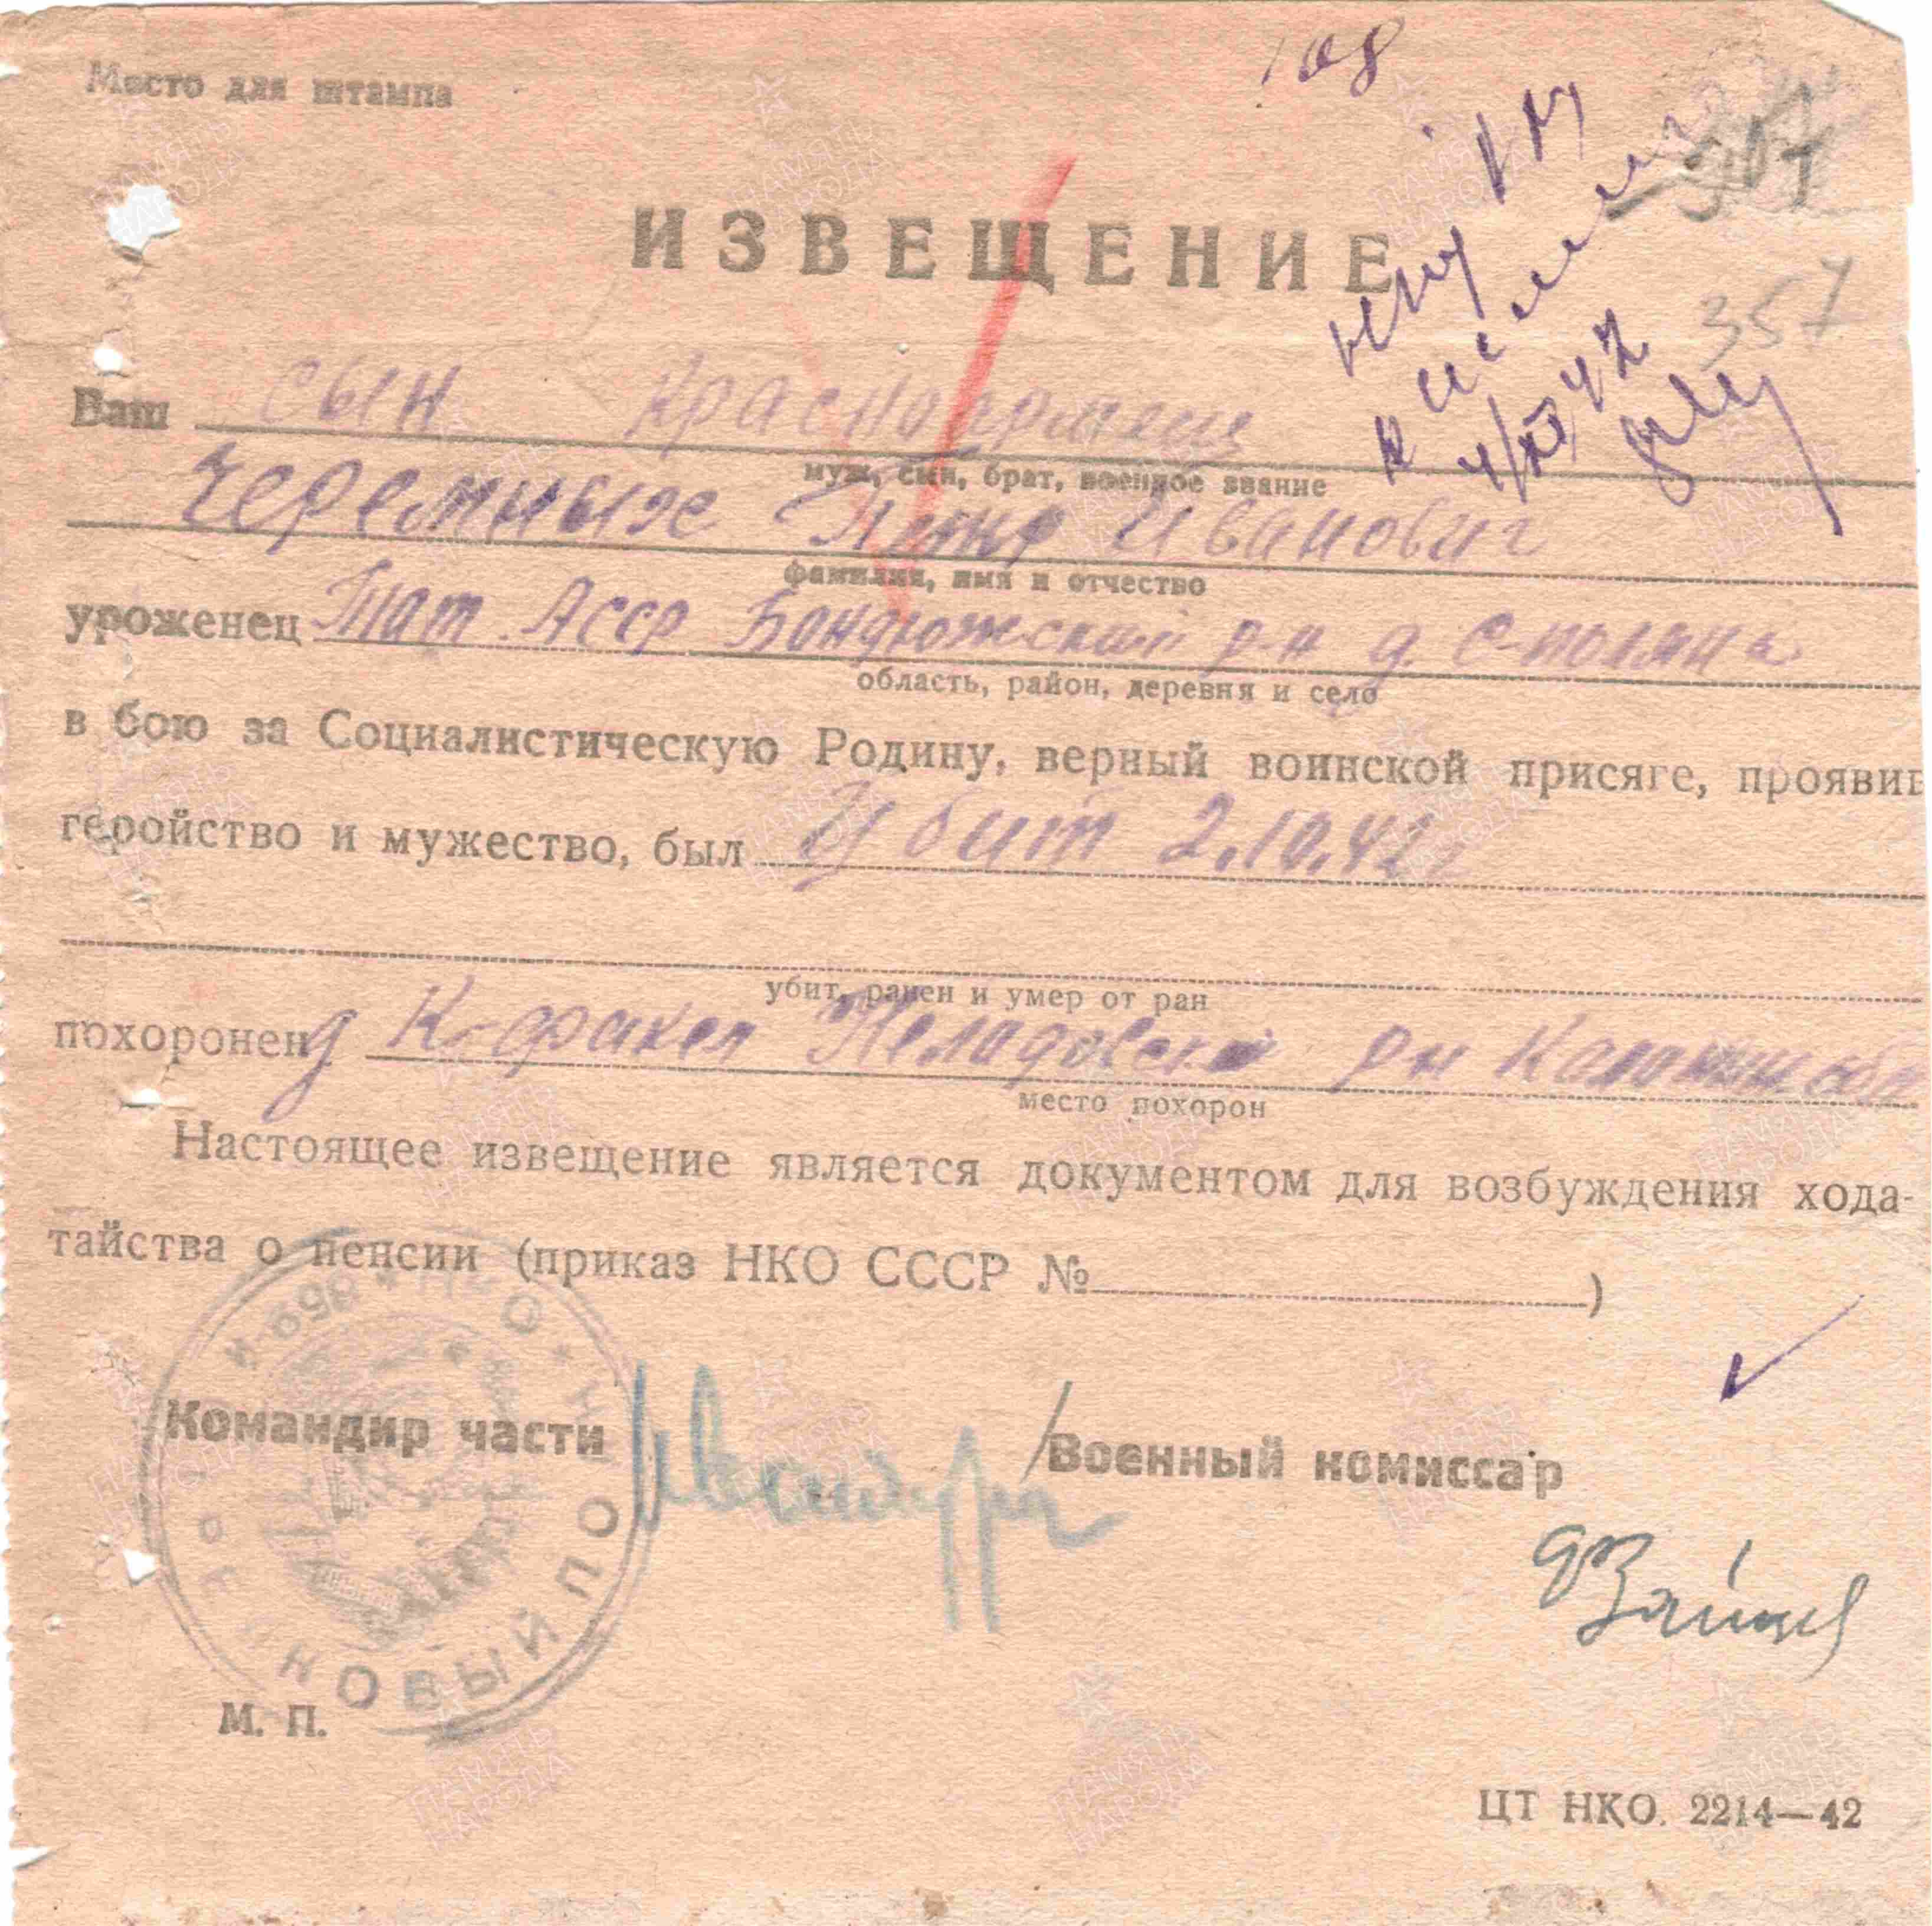 108
Место для штампа
357
ИЗВЕЩЕНИЕ
Ваш сын красноармеец
муж, сын, брат, военное звание
Черемных Петр Иванович
фамилия, имя и отчество
уроженец Тат. АССР Бондюжский р-н д. С-поляна
область, район, деревня и село
в бою за Социалистическую Родину, верный воинской присяге, проявив
геройство и мужество, был Убит 2.10.42
убит, ранен и умер от ран
похоронен д К-факел р-н
место похорон
Настоящее извещение является документом для возбуждения хода-
тайства о пенсии (приказ НКО СССР № )
Командир части Военный комиссар
НОВЫЙ ПО
М. П.
ЦТ НКО. 2214—42
ПАМЯТЬ НАРОДА